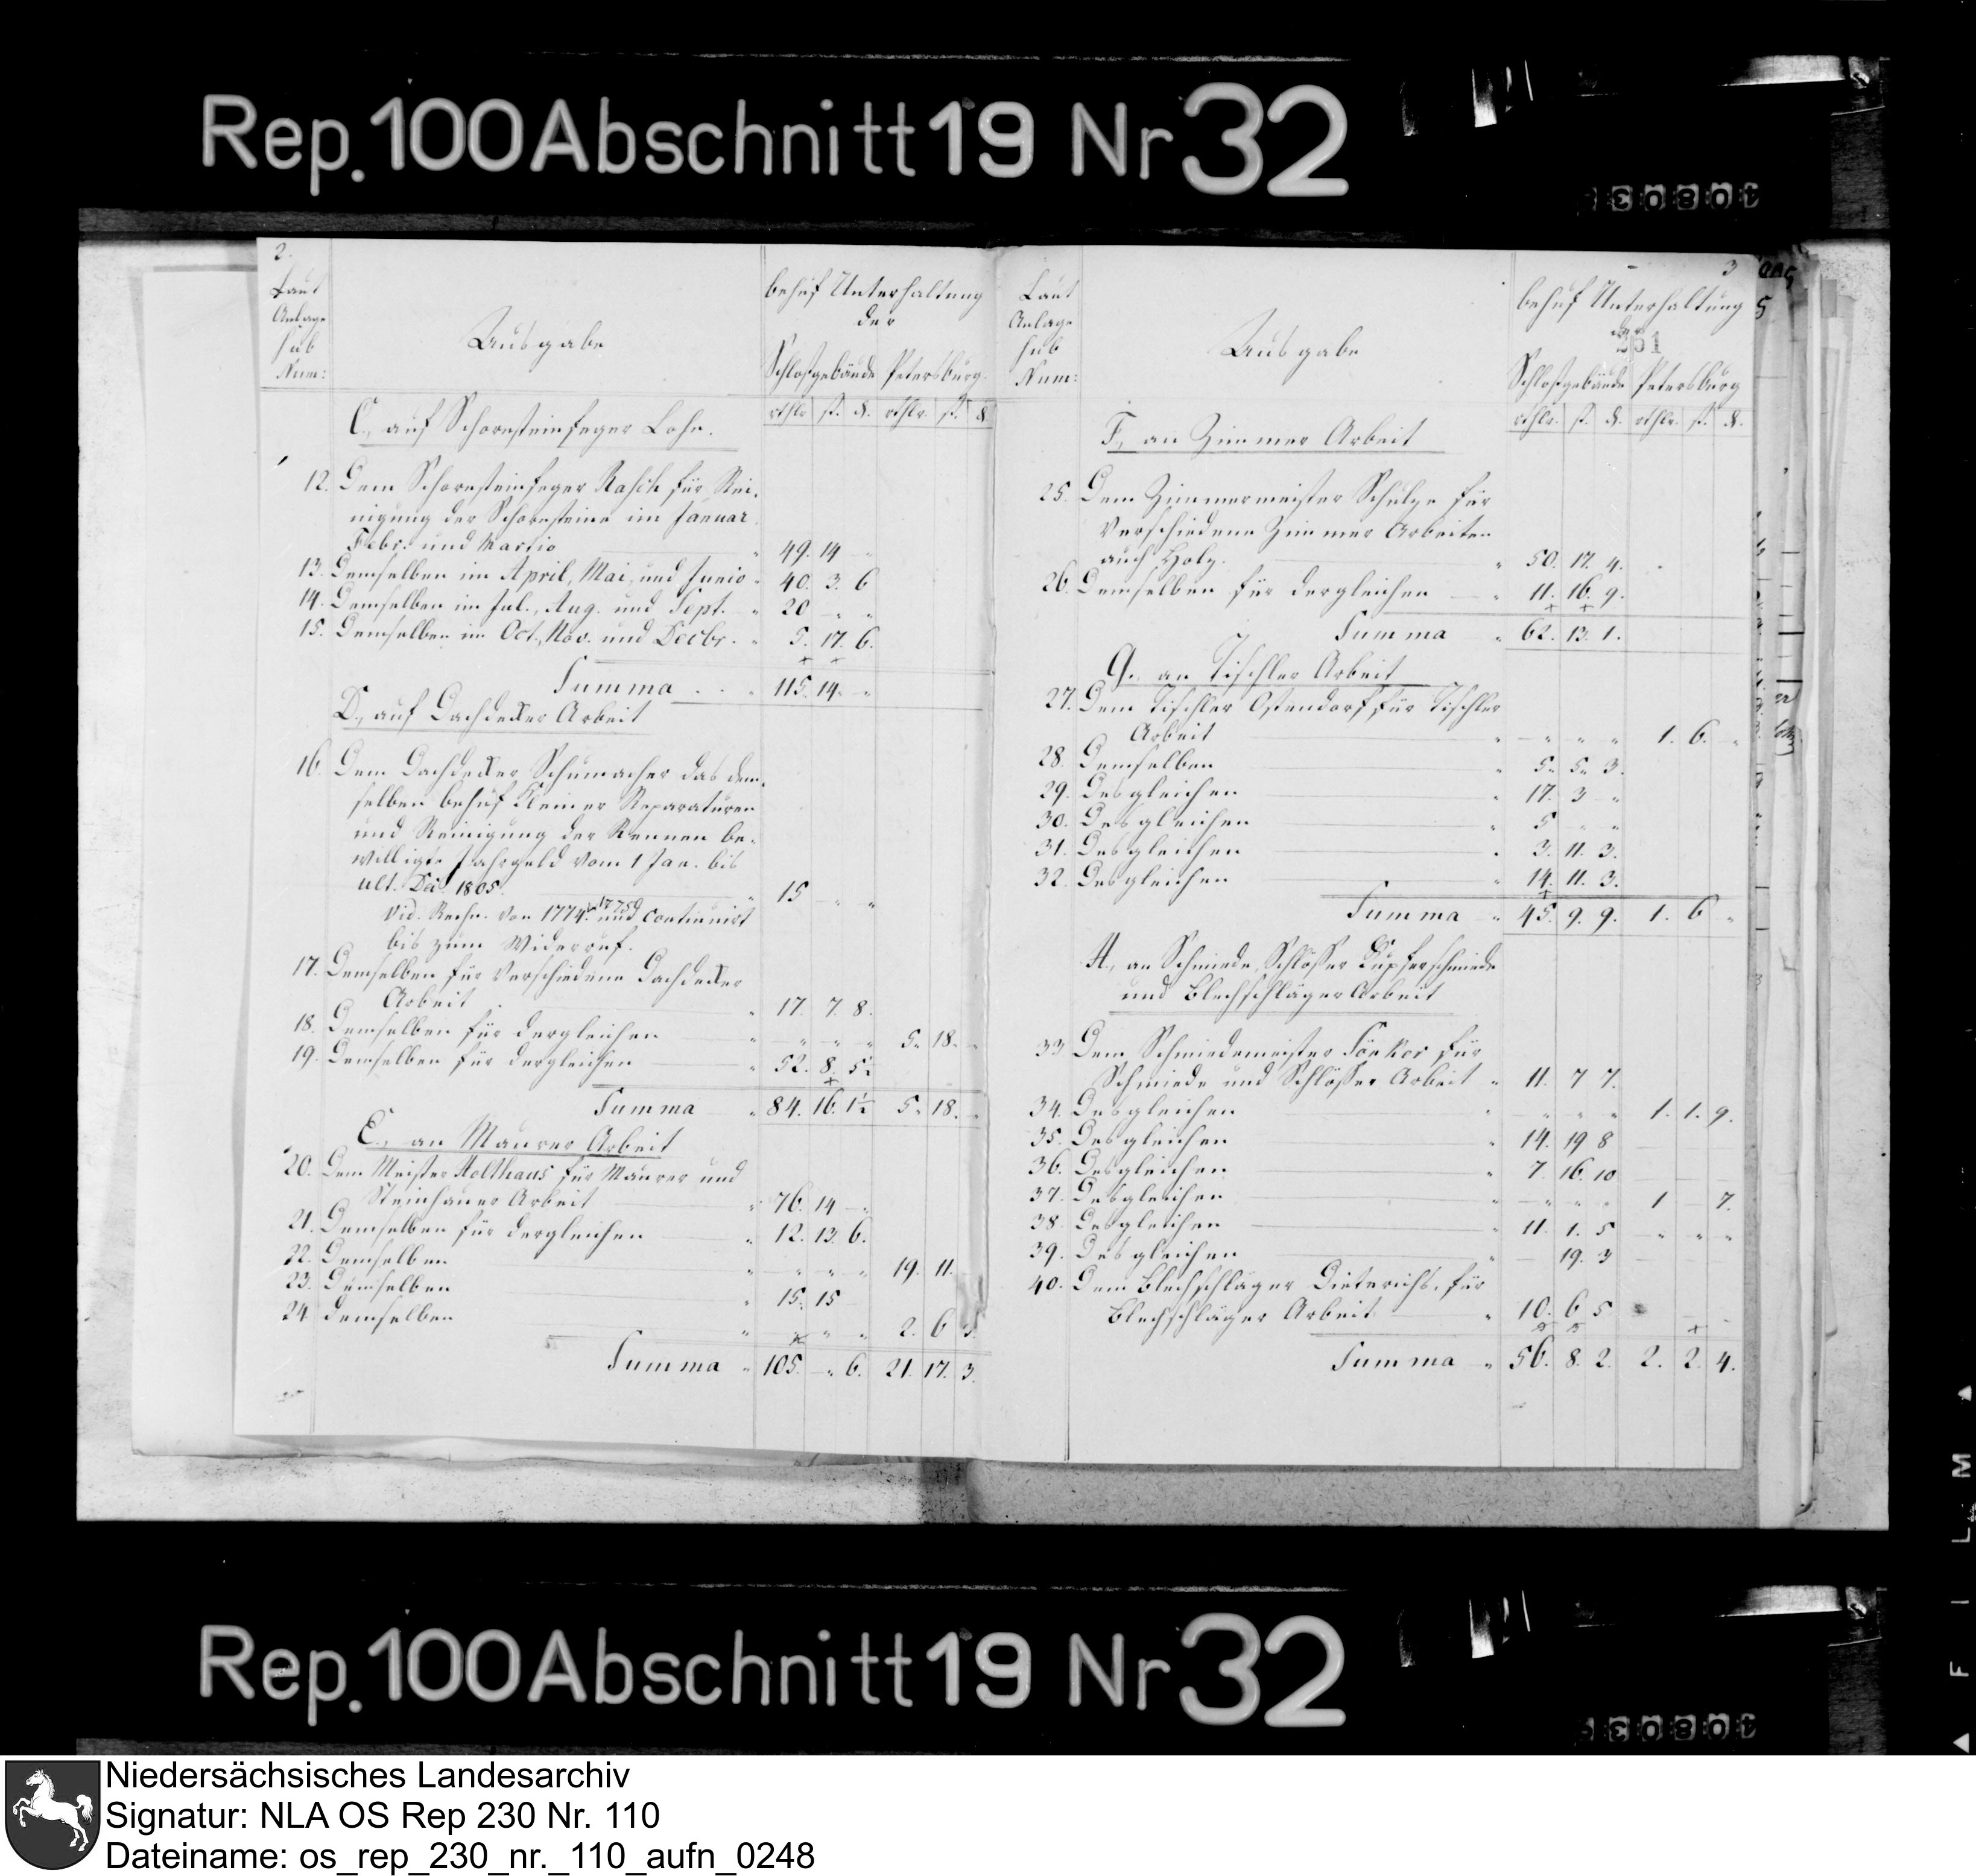 Rep. 100 Abschnitt 19 Nr 32
2.
Laut
Anlage
sub
Num:
Ausgabe
behuf Unterhaltung
der
Schloßgebäude Petersburg.
rthlr ß. d. rthlr. ß. d.
C., auf Schornsteinfeger Lohn.
12. Dem Schornsteinfeger Rasch für Rei-
nigung der Schornsteine im Januar
Febr. und Martio " 49. 14 "
13. Demselben im April, Mai und Junio " 40. 3. 6
14. Demselben im Jul., Aug. und Sept. " 20 " "
15. Demselben im Oct., Nov. und Decbr. " 5. 17. 6.
Summa . . " 115. 14. "
D., auf Dachdecker Arbeit
16. Dem Dachdecker Schumacher das dem-
selben behuf kleiner Reparaturen
und Reinigung der Rennen be-
willigte Jahrgeld vom 1 Jan. bis
ult. Dec. 1805. " 15 " "
vid. Rechn. von 1774. und continuirt
bis zum Widerruf.
17. Demselben für verschiedene Dachdecker
Arbeit " 17. 7. 8.
18. Demselben für dergleichen " " " " 5. 18. "
19. Demselben für dergleichen " 52. 8. 5½
Summa " 84. 16. 1½ 5. 18. "
E., an Maurer Arbeit
20. Dem Meister Holthaus für Maurer und
Steinhauer Arbeit " 76. 14 "
21. Demselben für dergleichen " 12. 13. 6.
22. Demselben " " " " 19. 11.
23. Demselben " 15. 15
24 Demselben " " " " 2. 6 3.
Summa " 105. " 6. 21. 17. 3.
3
Laut
Anlage
sub
Num:
Ausgabe
behuf Unterhaltung
der
251
Schloßgebäude Petersburg
rthlr. ß. d. rthlr. ß. d.
F., an Zimmer Arbeit
25. Dem Zimmermeister Schulze für
verschiedene Zimmer Arbeiten
auch Holz. " 50. 17. 4.
26. Demselben für dergleichen " 11. 16. 9.
Summa " 62. 13. 1.
G., an Tischler Arbeit
27. Dem Tischler Ostendorf für Tischler
Arbeit " " " " 1. 6. "
28. Demselben " 5. 5. 3.
29. Desgleichen " 17. 3 "
30. Desgleichen " 5 " "
31. Desgleichen " 3. 11. 3.
32. Desgleichen " 14. 11. 3.
Summa " 45. 9. 9. 1. 6 "
H., an Schmiede, Schlösser Kupferschmiede
und Blechschläger Arbeit
33 Dem Schmiedemeister für
Schmiede und Schlösser Arbeit " 11. 7 7.
34. Desgleichen " " " " 1. 1. 9.
35. Desgleichen " 14. 19 8
36. Desgleichen " 7. 16. 10
37. Desgleichen " " " " 1 — 7.
38. Desgleichen " 11. 1. 5 " " "
39. Desgleichen " — 19. 3
40. Dem Blechschläger Dieterichs, für
Blechschläger Arbeit " 10. 6 5
Summa " 56. 8. 2. 2. 2. 4.
Rep. 100 Abschnitt 19 Nr 32
Niedersächsisches Landesarchiv
Signatur: NLA OS Rep 230 Nr. 110
Dateiname: os_rep_230_nr._110_aufn_0248